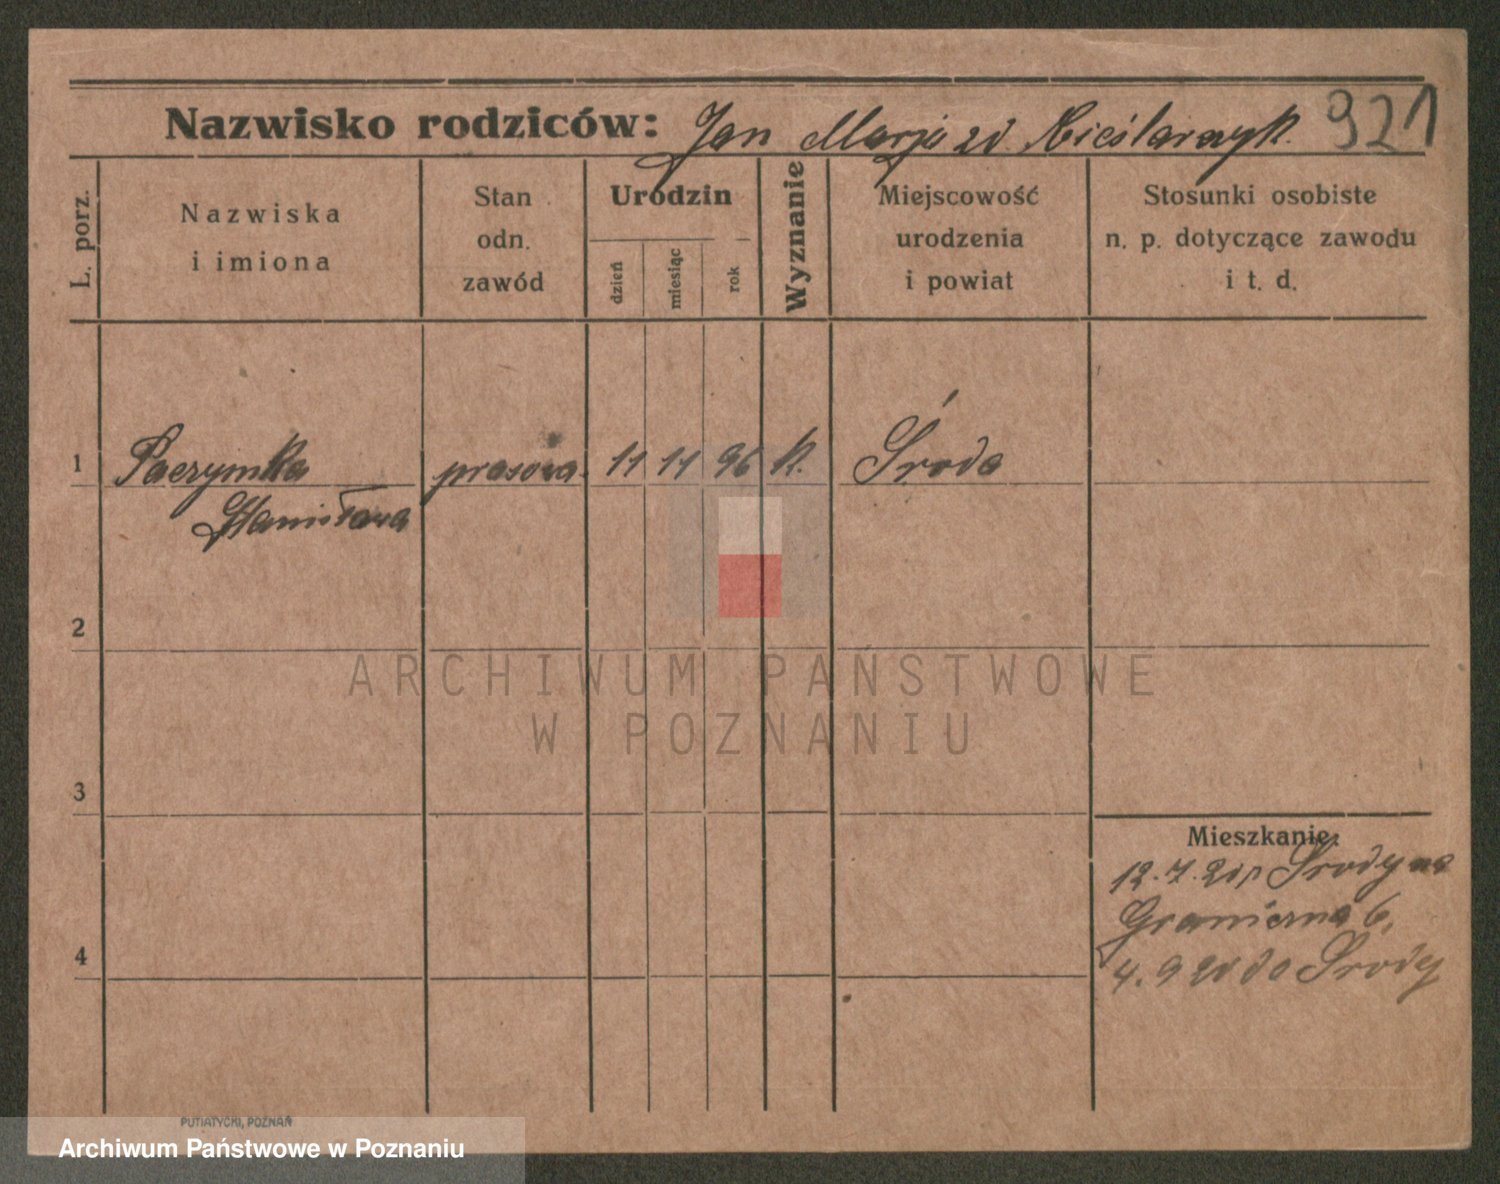 Nazwisko rodziców: Jan Marja zd. Kieślarczyk. 921
L. porz.
Nazwiska
i imiona
Stan
odn.
zawód
Urodzin
dzień
miesiąc
rok
Wyznanie
Miejscowość
urodzenia
i powiat
Stosunki osobiste
n. p. dotyczące zawodu
i t. d.
1 Paczymka prasowa. 11 11 96 K. Środa
Stanisława
2
ARCHIWUM PAŃSTWOWE
W POZNANIU
3
Mieszkanie:
12. 7. Środy na
Graniczna 6,
4
4. 9 do Środy
PUTIATYCKI, POZNAŃ
Archiwum Państwowe w Poznaniu